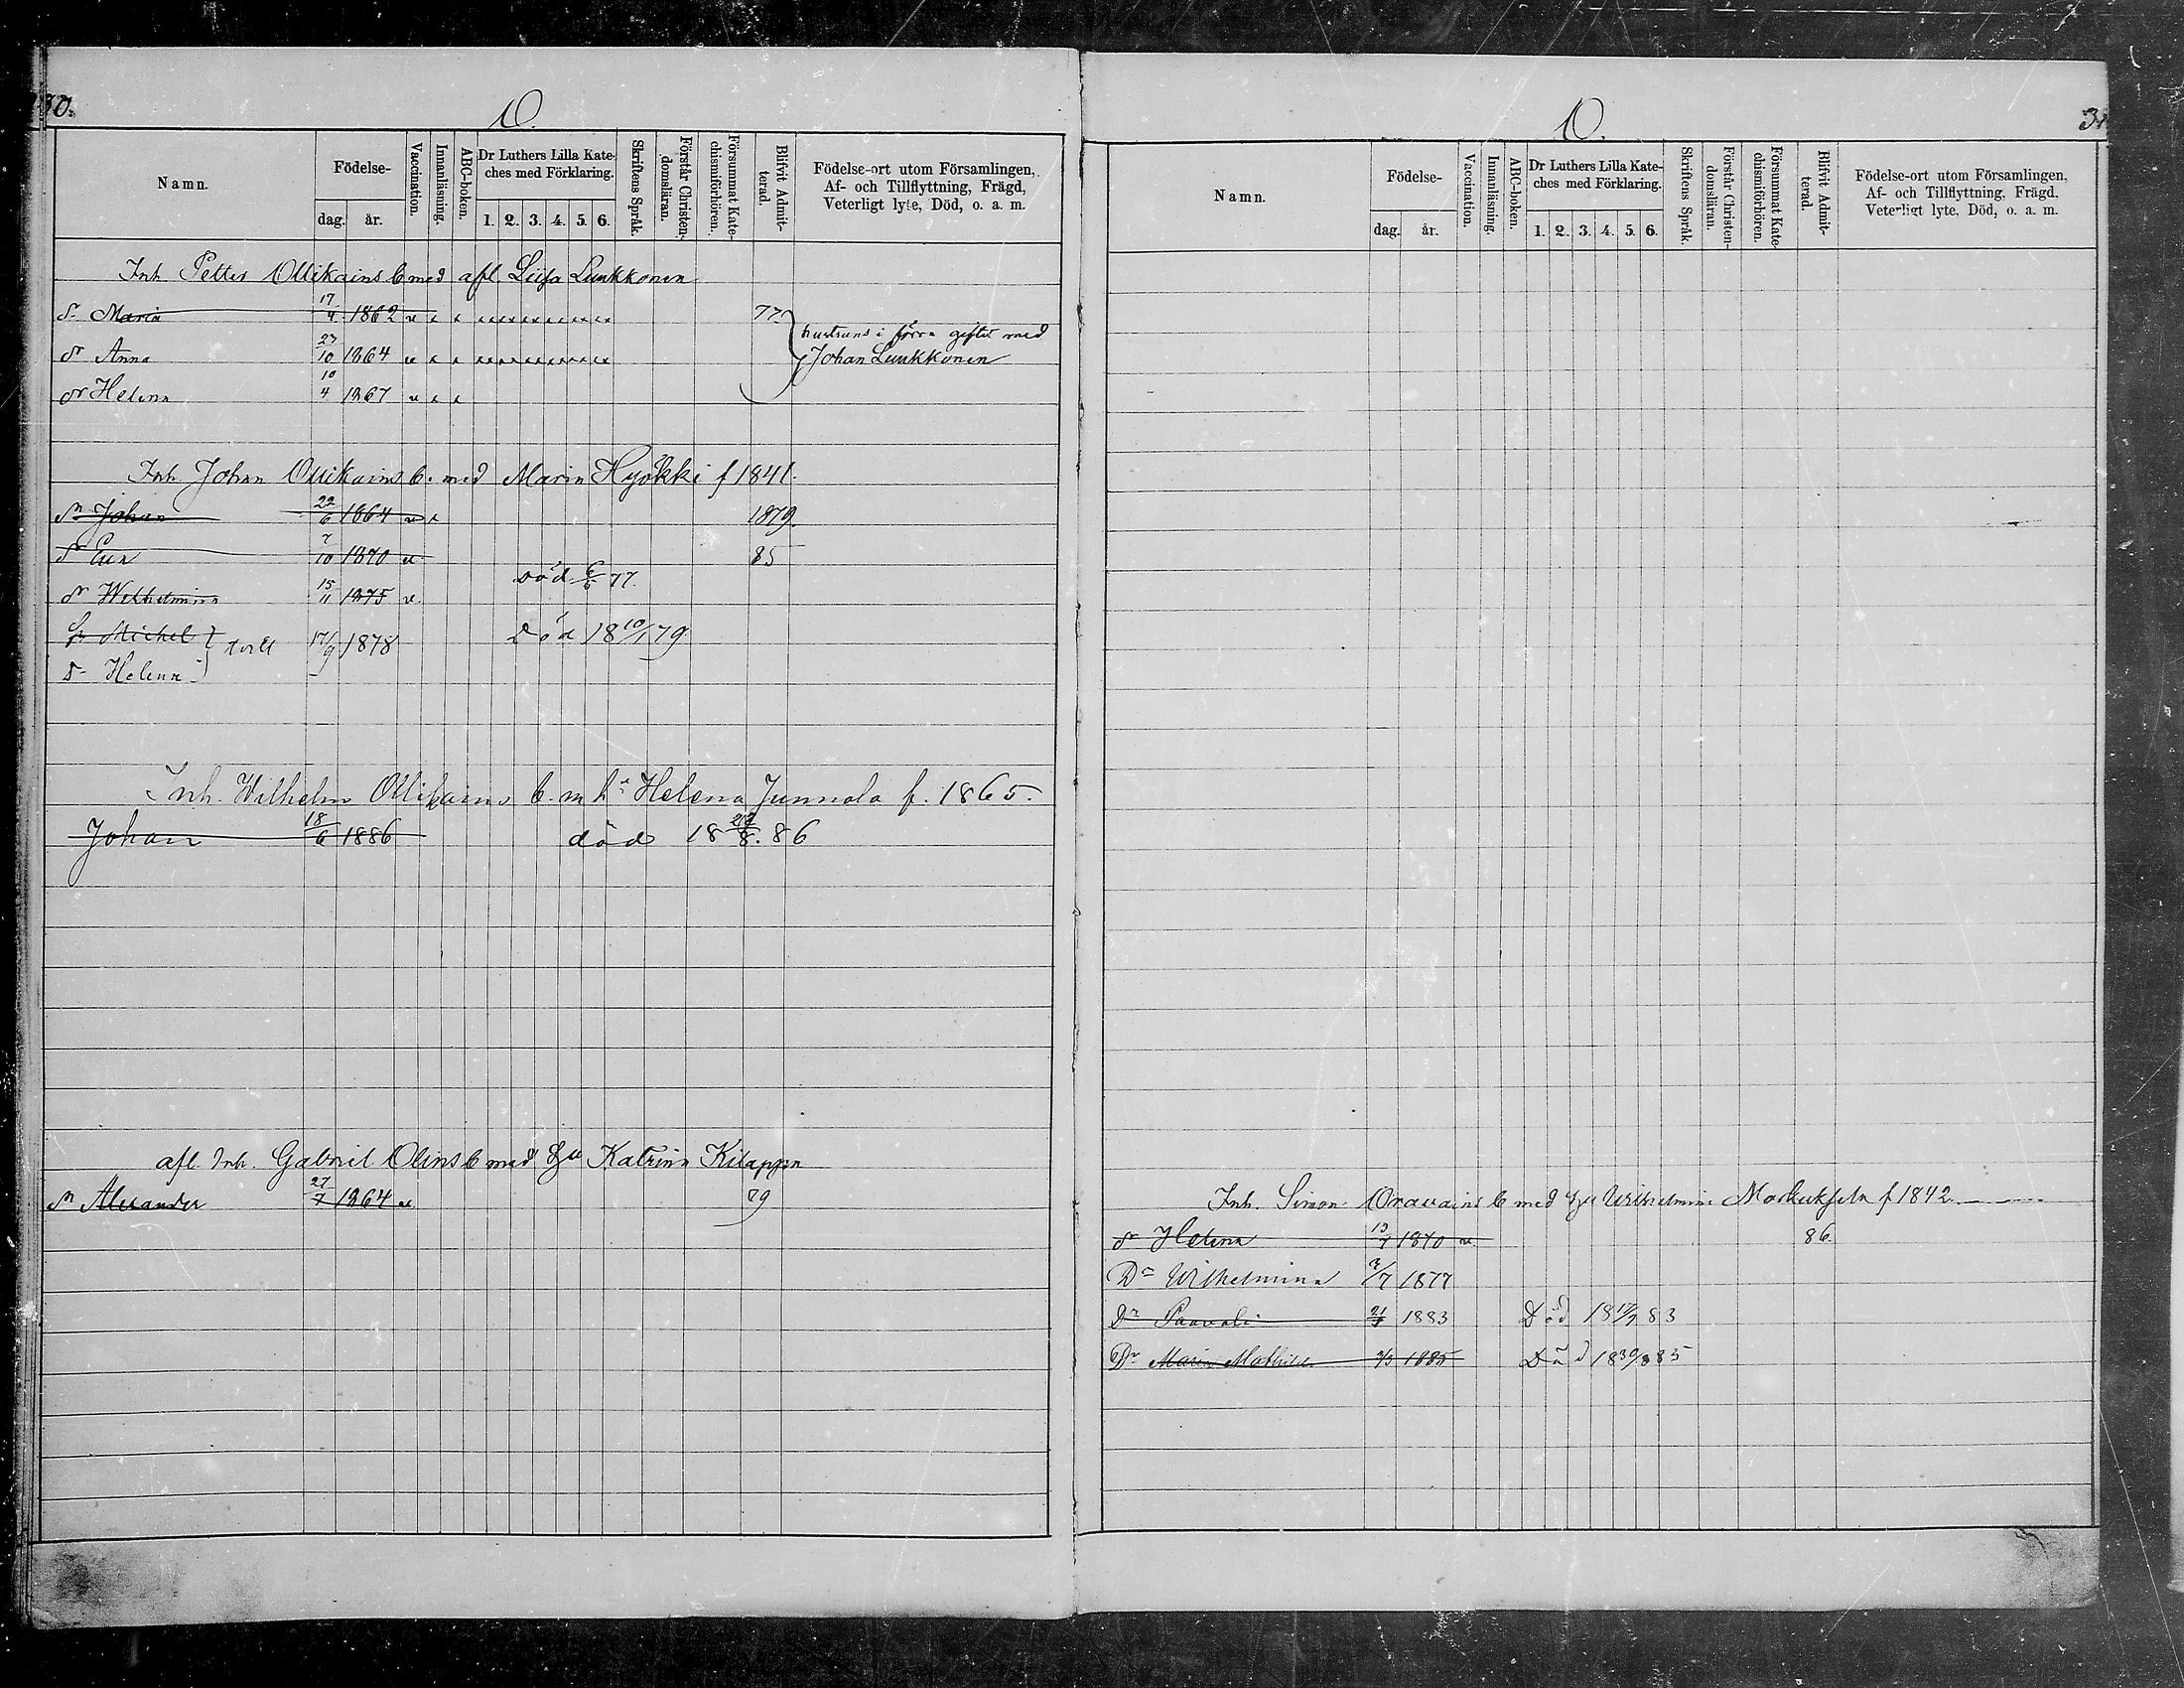 30.
O.
Namn.
Födelse-
dag.
år.
Vaccination.
Innanläsning.
ABC-boken.
Dr Luthers Lilla Kate-
ches med Förklaring.
1. 2. 3. 4. 5. 6.
Skriftens Språk.
Förstår Christen-
domsläran.
Försummat Kate-
chismiförhören.
Blifvit Admit-
terad.
Födelse-ort utom Församlingen,
Af- och Tillflyttning, Frägd,
Veterligt lyte, Död, o. a. m.
Inh. Petter Ollikains b med afl. Liisa Luukkonen
dr Maria 17/4 1862 77
hustruns i förra giftet med
dr Anna 23/10 1864 Johan Luukkonen
dr Helena 10/4 1867
Inh. Johan Ollikains b. med Maria Hyökki f 1841.
sn Johan 22/6 1864 1879.
dr Eva 7/10 1870 85
dr Wilhelmina 15/11 1875 Död 6/6 77.
Sn Michel 17/9 1878 Död 18 10/1 79
Dr Helena
Inh. Wilhelm Ollikains b. m. h. Helena Junnola f. 1865.
Johan 18/6 1886 död 18 /8. 86
afl. Inh. Gabriel Olins b med Katrina Kilappa
sn Alexander 27/7 1864 79
O.
Namn.
Födelse-
dag.
år.
Vaccination.
Innanläsning.
ABC-boken.
Dr Luthers Lilla Kate-
ches med Förklaring.
1. 2. 3. 4. 5. 6.
Skriftens Språk.
Förstår Christen-
domsläran.
Försummat Kate-
chismiförhören.
Blifvit Admit-
terad.
Födelse-ort utom Församlingen,
Af- och Tillflyttning, Frägd,
Veterligt lyte, Död, o. a. m.
Inh. Simon Oravains b med Wilhelmina f 1842
dr Helena 1870 86.
Dr Wilhelmina 1877
Paavali 1883 Död 83
Dr Maria Mathilda 1885 Död 18 30/8 85